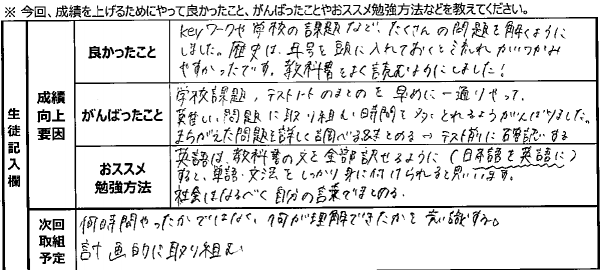 ※ 今回、成績を上げるためにやって良かったこと、がんばったことやおススメ勉強方法などを教えてください。
生徒記入欄
成績向上要因
良かったこと
Keyワークや学校の課題など、たくさんの問題を解くように
しました。歴史は、年号を頭に入れておくと流れがつかみ
やすかったです。教科書をよく読むようにしました！
がんばったこと
学校課題、テストノートのまとめを早めに一通りやって、
難しい問題に取り組む時間を多くとれるようがんばりました。
まちがえた問題を詳しく調べまとめる→テスト前に再確認する
おススメ勉強方法
英語は、教科書の文を全部訳せるように（日本語を英語に）
すると、単語・文法をしっかり身に付けられると思います。
社会はなるべく自分の言葉でまとめる。
次回取組予定
何時間やったかではなく、何が理解できたかを意識する。
計画的に取り組む